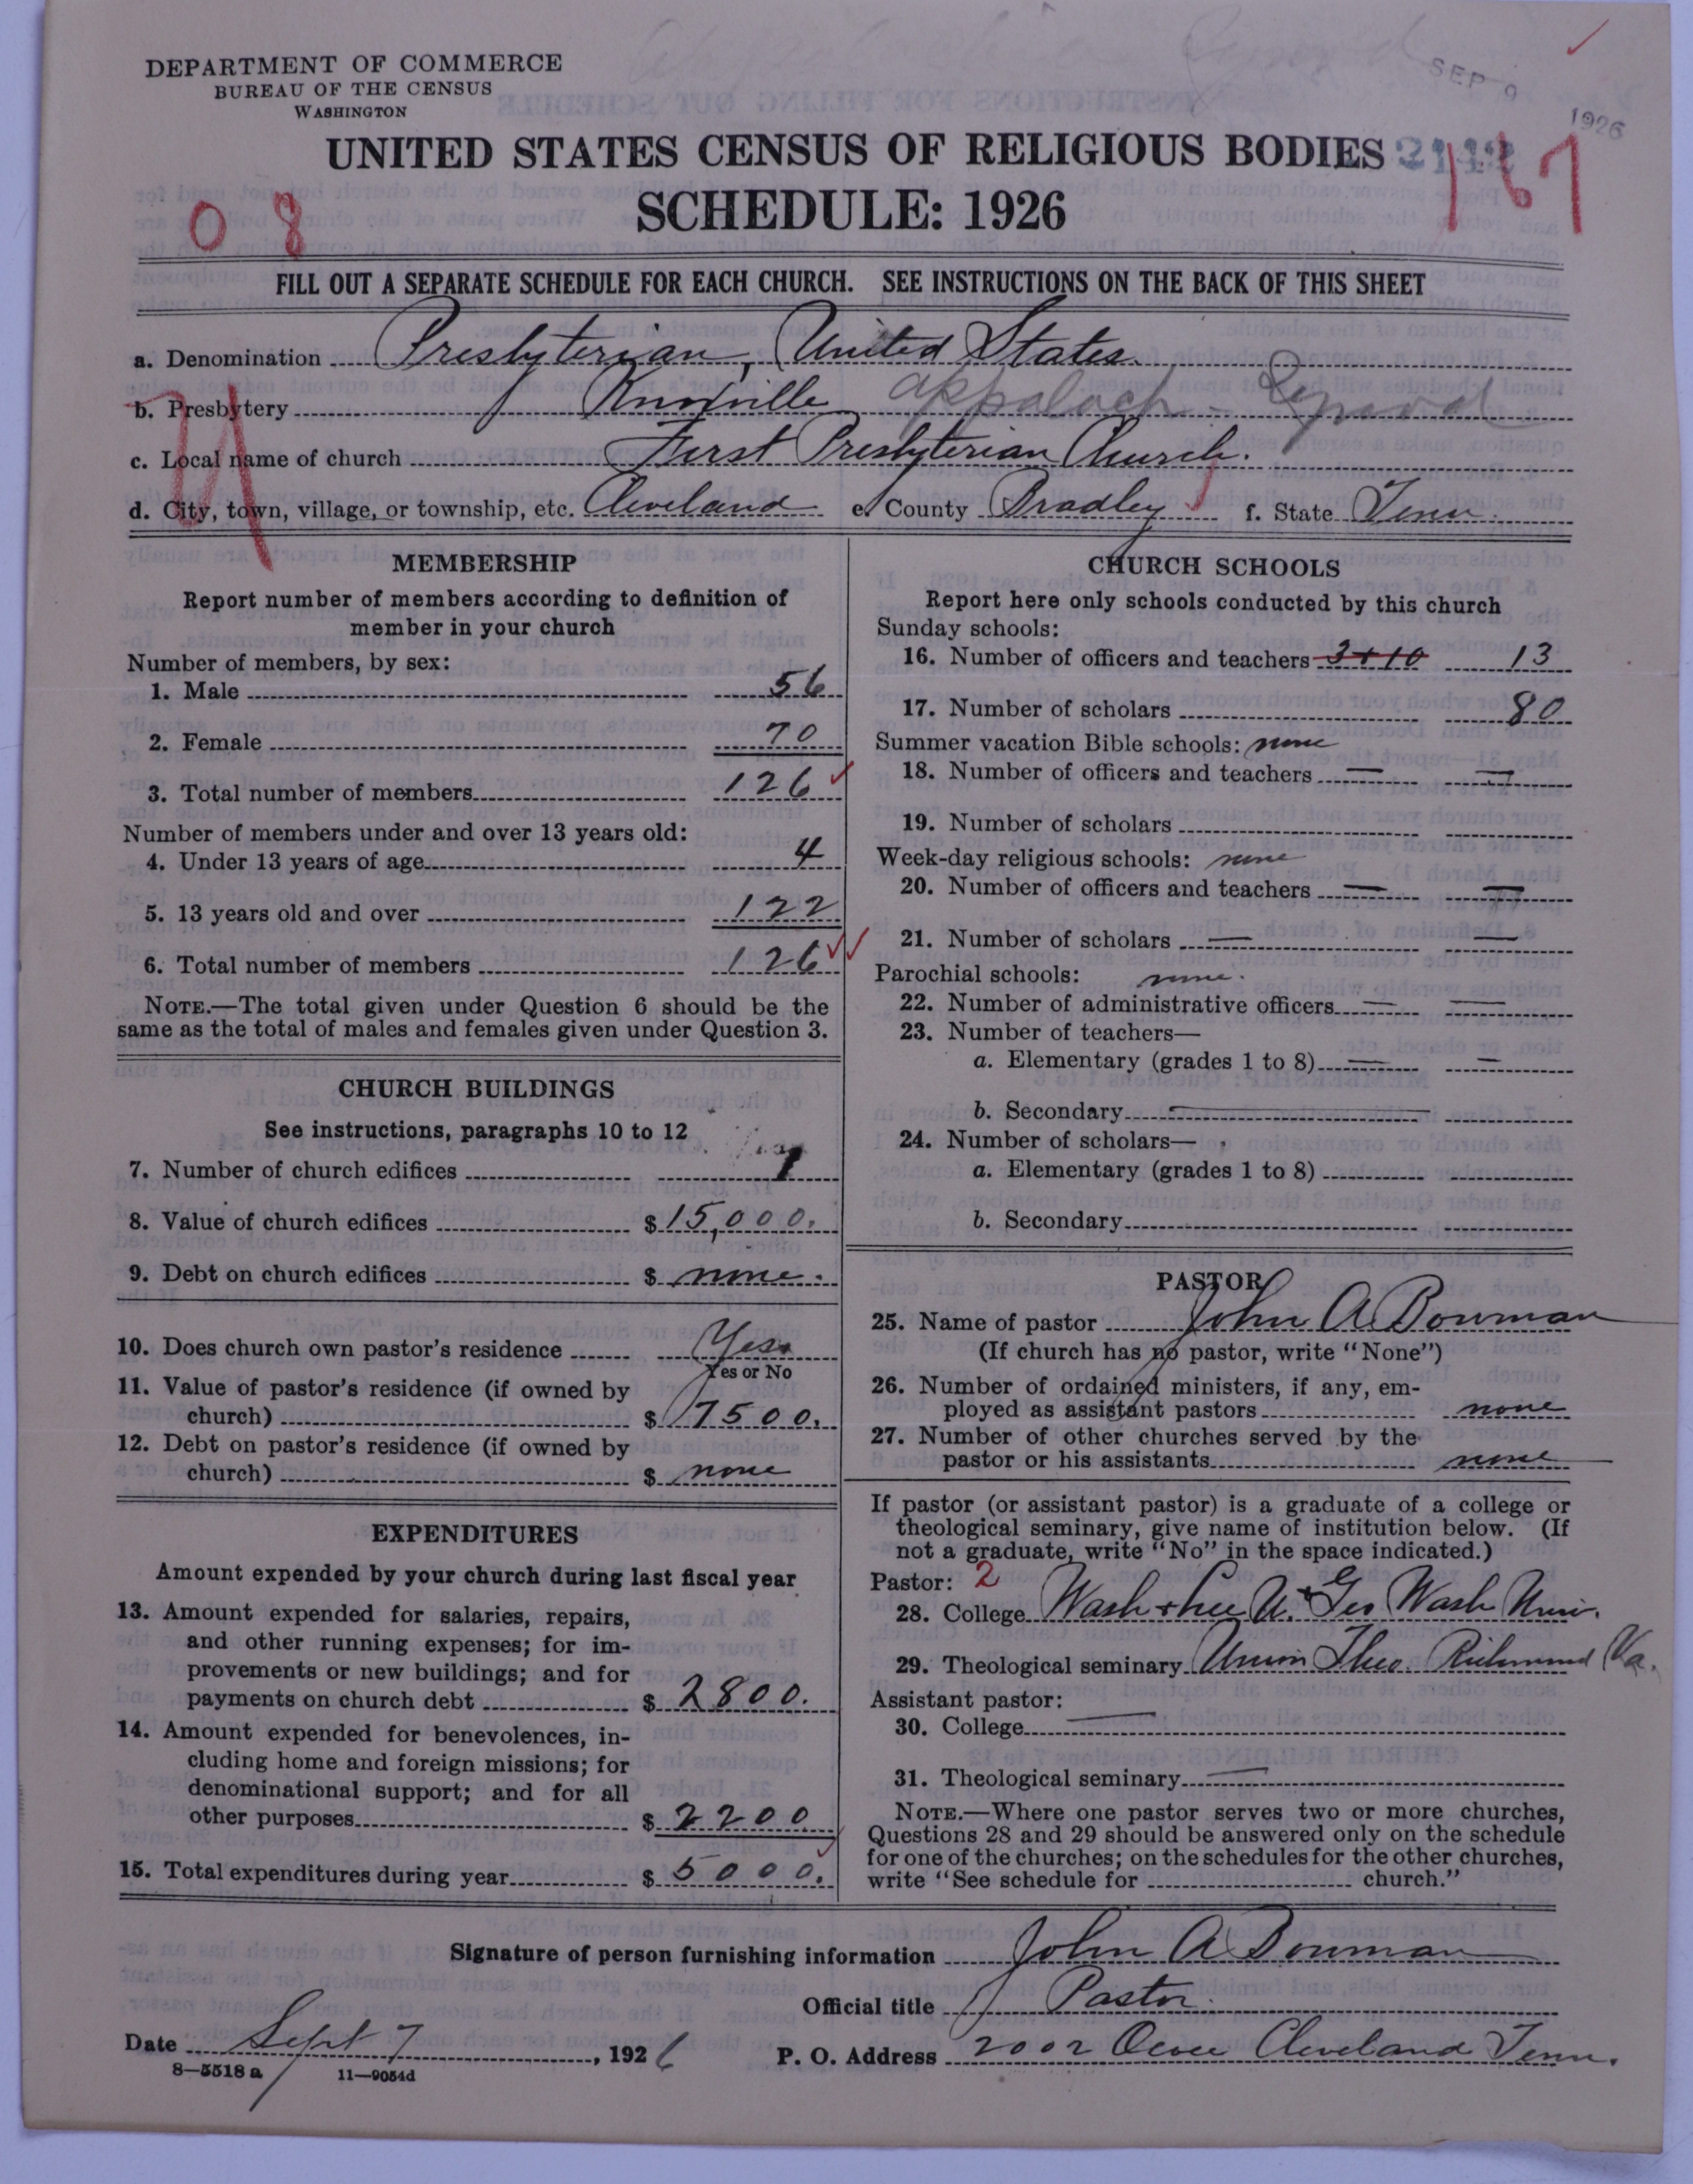 DEPARTMENT OF COMMERCE
BUREAU OF THE CENSUS
WASHINGTON
SEP 9 1926
UNITED STATES CENSUS OF RELIGIOUS BODIES
SCHEDULE: 1926
0 8
167
FILL OUT A SEPARATE SCHEDULE FOR EACH CHURCH. SEE INSTRUCTIONS ON THE BACK OF THIS SHEET
a. Denomination Presbyterian, United States
b. Presbytery Knoxville Appalach - Synod
c. Local name of church First Presbyterian Church.
d. City, town, village, or township, etc. Cleveland e. County Bradley f. State Tenn.
MEMBERSHIP
Report number of members according to definition of
member in your church
Number of members, by sex:
1. Male 56
2. Female 70
3. Total number of members 126
Number of members under and over 13 years old:
4. Under 13 years of age 4
5. 13 years old and over 122
6. Total number of members 126
NOTE.—The total given under Question 6 should be the
same as the total of males and females given under Question 3.
CHURCH BUILDINGS
See instructions, paragraphs 10 to 12
7. Number of church edifices 1
8. Value of church edifices $ 15,000.
9. Debt on church edifices $ none.
10. Does church own pastor's residence Yes
Yes or No
11. Value of pastor's residence (if owned by
church) $ 7500.
12. Debt on pastor's residence (if owned by
church) $ none
EXPENDITURES
Amount expended by your church during last fiscal year
13. Amount expended for salaries, repairs,
and other running expenses; for im-
provements or new buildings; and for
payments on church debt $ 2800.
14. Amount expended for benevolences, in-
cluding home and foreign missions; for
denominational support; and for all
other purposes $ 2200
15. Total expenditures during year $ 5000.
CHURCH SCHOOLS
Report here only schools conducted by this church
Sunday schools:
16. Number of officers and teachers 3+10 13
17. Number of scholars 80
Summer vacation Bible schools: none
18. Number of officers and teachers — —
19. Number of scholars
Week-day religious schools: none
20. Number of officers and teachers — —
21. Number of scholars — —
Parochial schools: none.
22. Number of administrative officers — —
23. Number of teachers—
a. Elementary (grades 1 to 8) — —
b. Secondary —
24. Number of scholars—
a. Elementary (grades 1 to 8)
b. Secondary
PASTOR
25. Name of pastor John A Bowman
(If church has no pastor, write "None")
26. Number of ordained ministers, if any, em-
ployed as assistant pastors none
27. Number of other churches served by the
pastor or his assistants none
If pastor (or assistant pastor) is a graduate of a college or
theological seminary, give name of institution below. (If
not a graduate, write "No" in the space indicated.)
Pastor: 2
28. College Wash + Lee U. + Geo Wash Univ.
29. Theological seminary Union Theo. Richmond Va.
Assistant pastor:
30. College —
31. Theological seminary —
NOTE.—Where one pastor serves two or more churches,
Questions 28 and 29 should be answered only on the schedule
for one of the churches; on the schedules for the other churches,
write "See schedule for church."
Signature of person furnishing information John A Bowman
Official title Pastor
Date Sept 7, 1926 P. O. Address 2002 Ocoee Cleveland Tenn.
8—5518 a 11—9054d